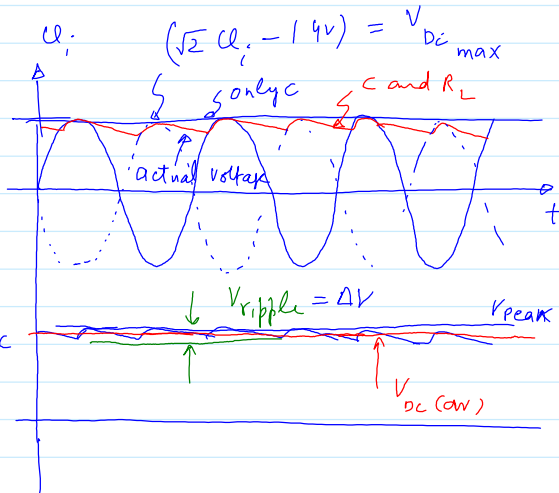 U_i
(√2 U_i - 1.4v) = V_DC max
only C
C and R_L
actual voltage
t
V_ripple = ΔV
V_Peak
C
V_DC (av)